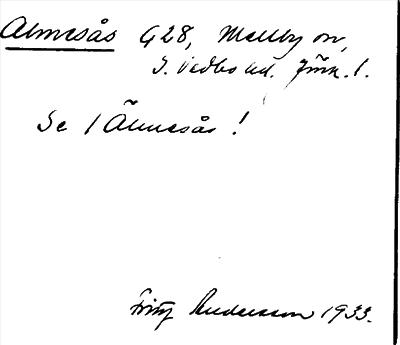 Almesås G28, Mellby sn,
S. Vedbo hd. Jönk. l.
Se / Älmesås !
Fritz Andersson 1933.